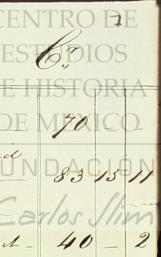 CENTRO DE
ESTUDIOS
DE HISTORIA
DE MÉXICO
FUNDACIÓN
Carlos Slim
Cr
70 — —
83 15 11
40 — 2